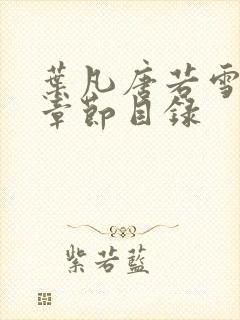 葉凡唐若雪
章節目錄
紫若藍